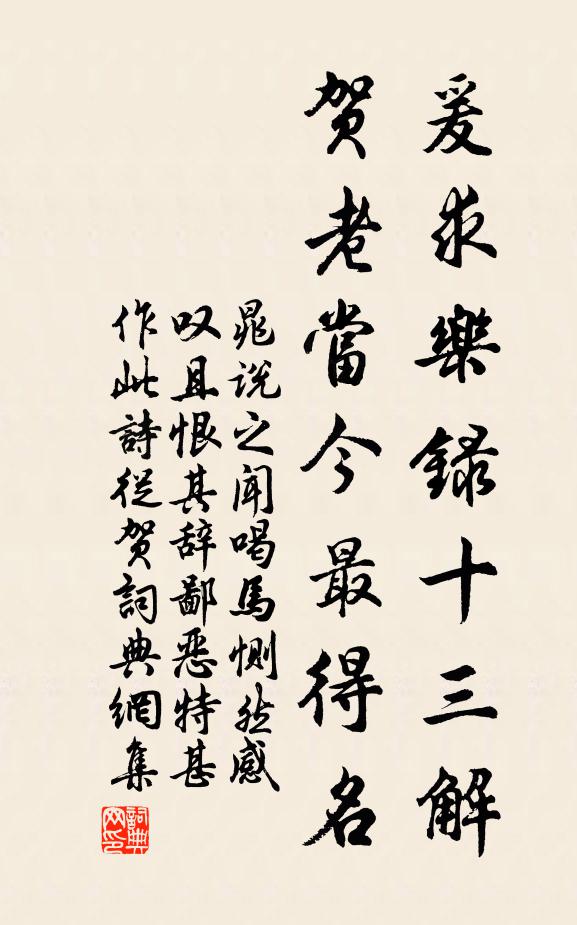 爰求樂錄十三解
賀老當今最得名
晁說之聞喝馬惻然感
叹且恨其辞鄙恶特甚
作此詩從賀詞典網集
詞典
网印